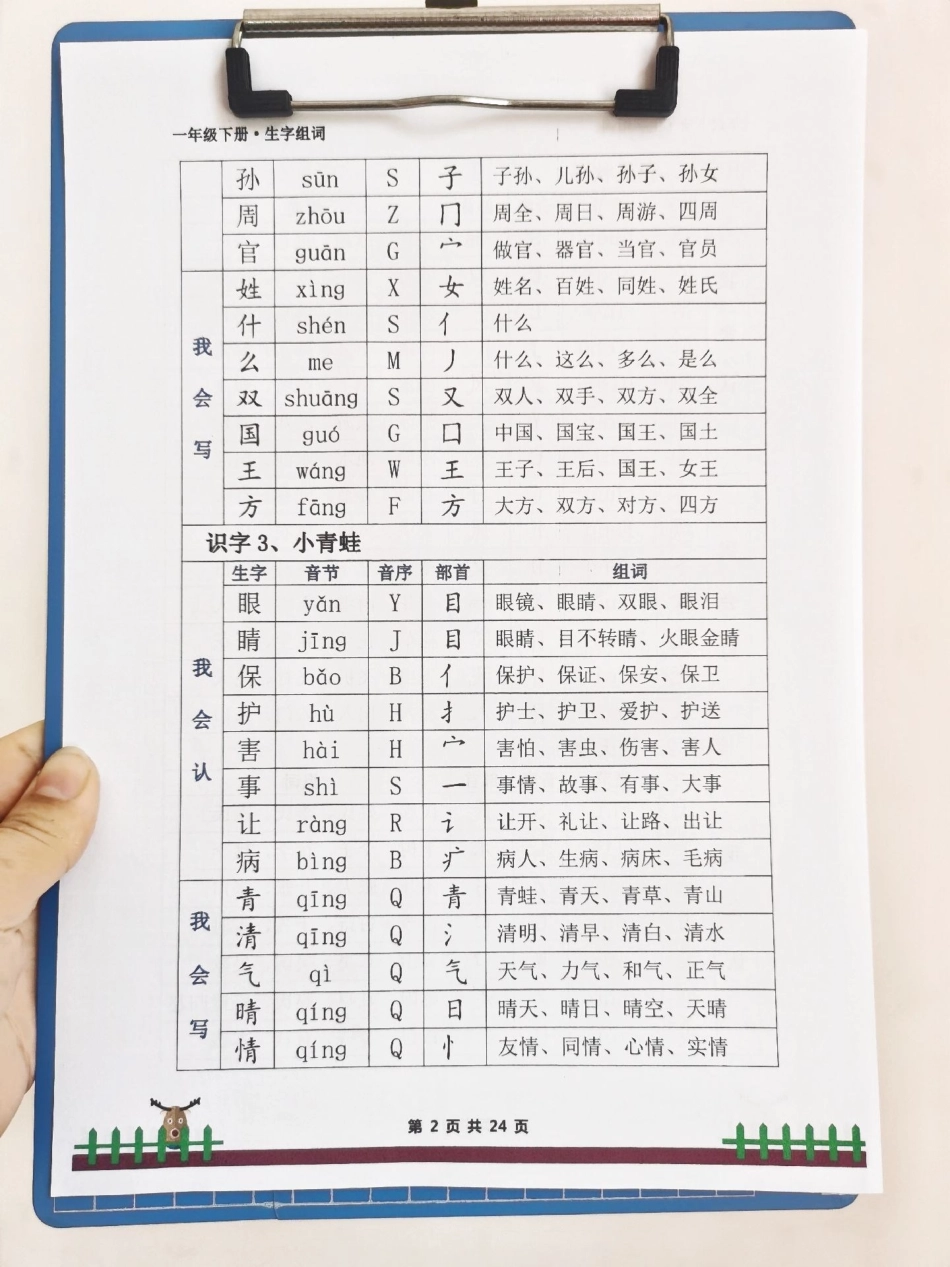 一年级下册·生字组词
孙 sūn S 子 子孙、儿孙、孙子、孙女
周 zhōu Z 冂 周全、周日、周游、四周
官 guān G 宀 做官、器官、当官、官员
我会写
姓 xìng X 女 姓名、百姓、同姓、姓氏
什 shén S 亻 什么
么 me M 丿 什么、这么、多么、是么
双 shuāng S 又 双人、双手、双方、双全
国 guó G 囗 中国、国宝、国王、国土
王 wáng W 王 王子、王后、国王、女王
方 fāng F 方 大方、双方、对方、四方
识字 3、小青蛙
生字 音节 音序 部首 组词
我会认
眼 yǎn Y 目 眼镜、眼睛、双眼、眼泪
睛 jīng J 目 眼睛、目不转睛、火眼金睛
保 bǎo B 亻 保护、保证、保安、保卫
护 hù H 扌 护士、护卫、爱护、护送
害 hài H 宀 害怕、害虫、伤害、害人
事 shì S 一 事情、故事、有事、大事
让 ràng R 讠 让开、礼让、让路、出让
病 bìng B 疒 病人、生病、病床、毛病
我会写
青 qīng Q 青 青蛙、青天、青草、青山
清 qīng Q 氵 清明、清早、清白、清水
气 qì Q 气 天气、力气、和气、正气
晴 qíng Q 日 晴天、晴日、晴空、天晴
情 qíng Q 忄 友情、同情、心情、实情
第 2 页 共 24 页